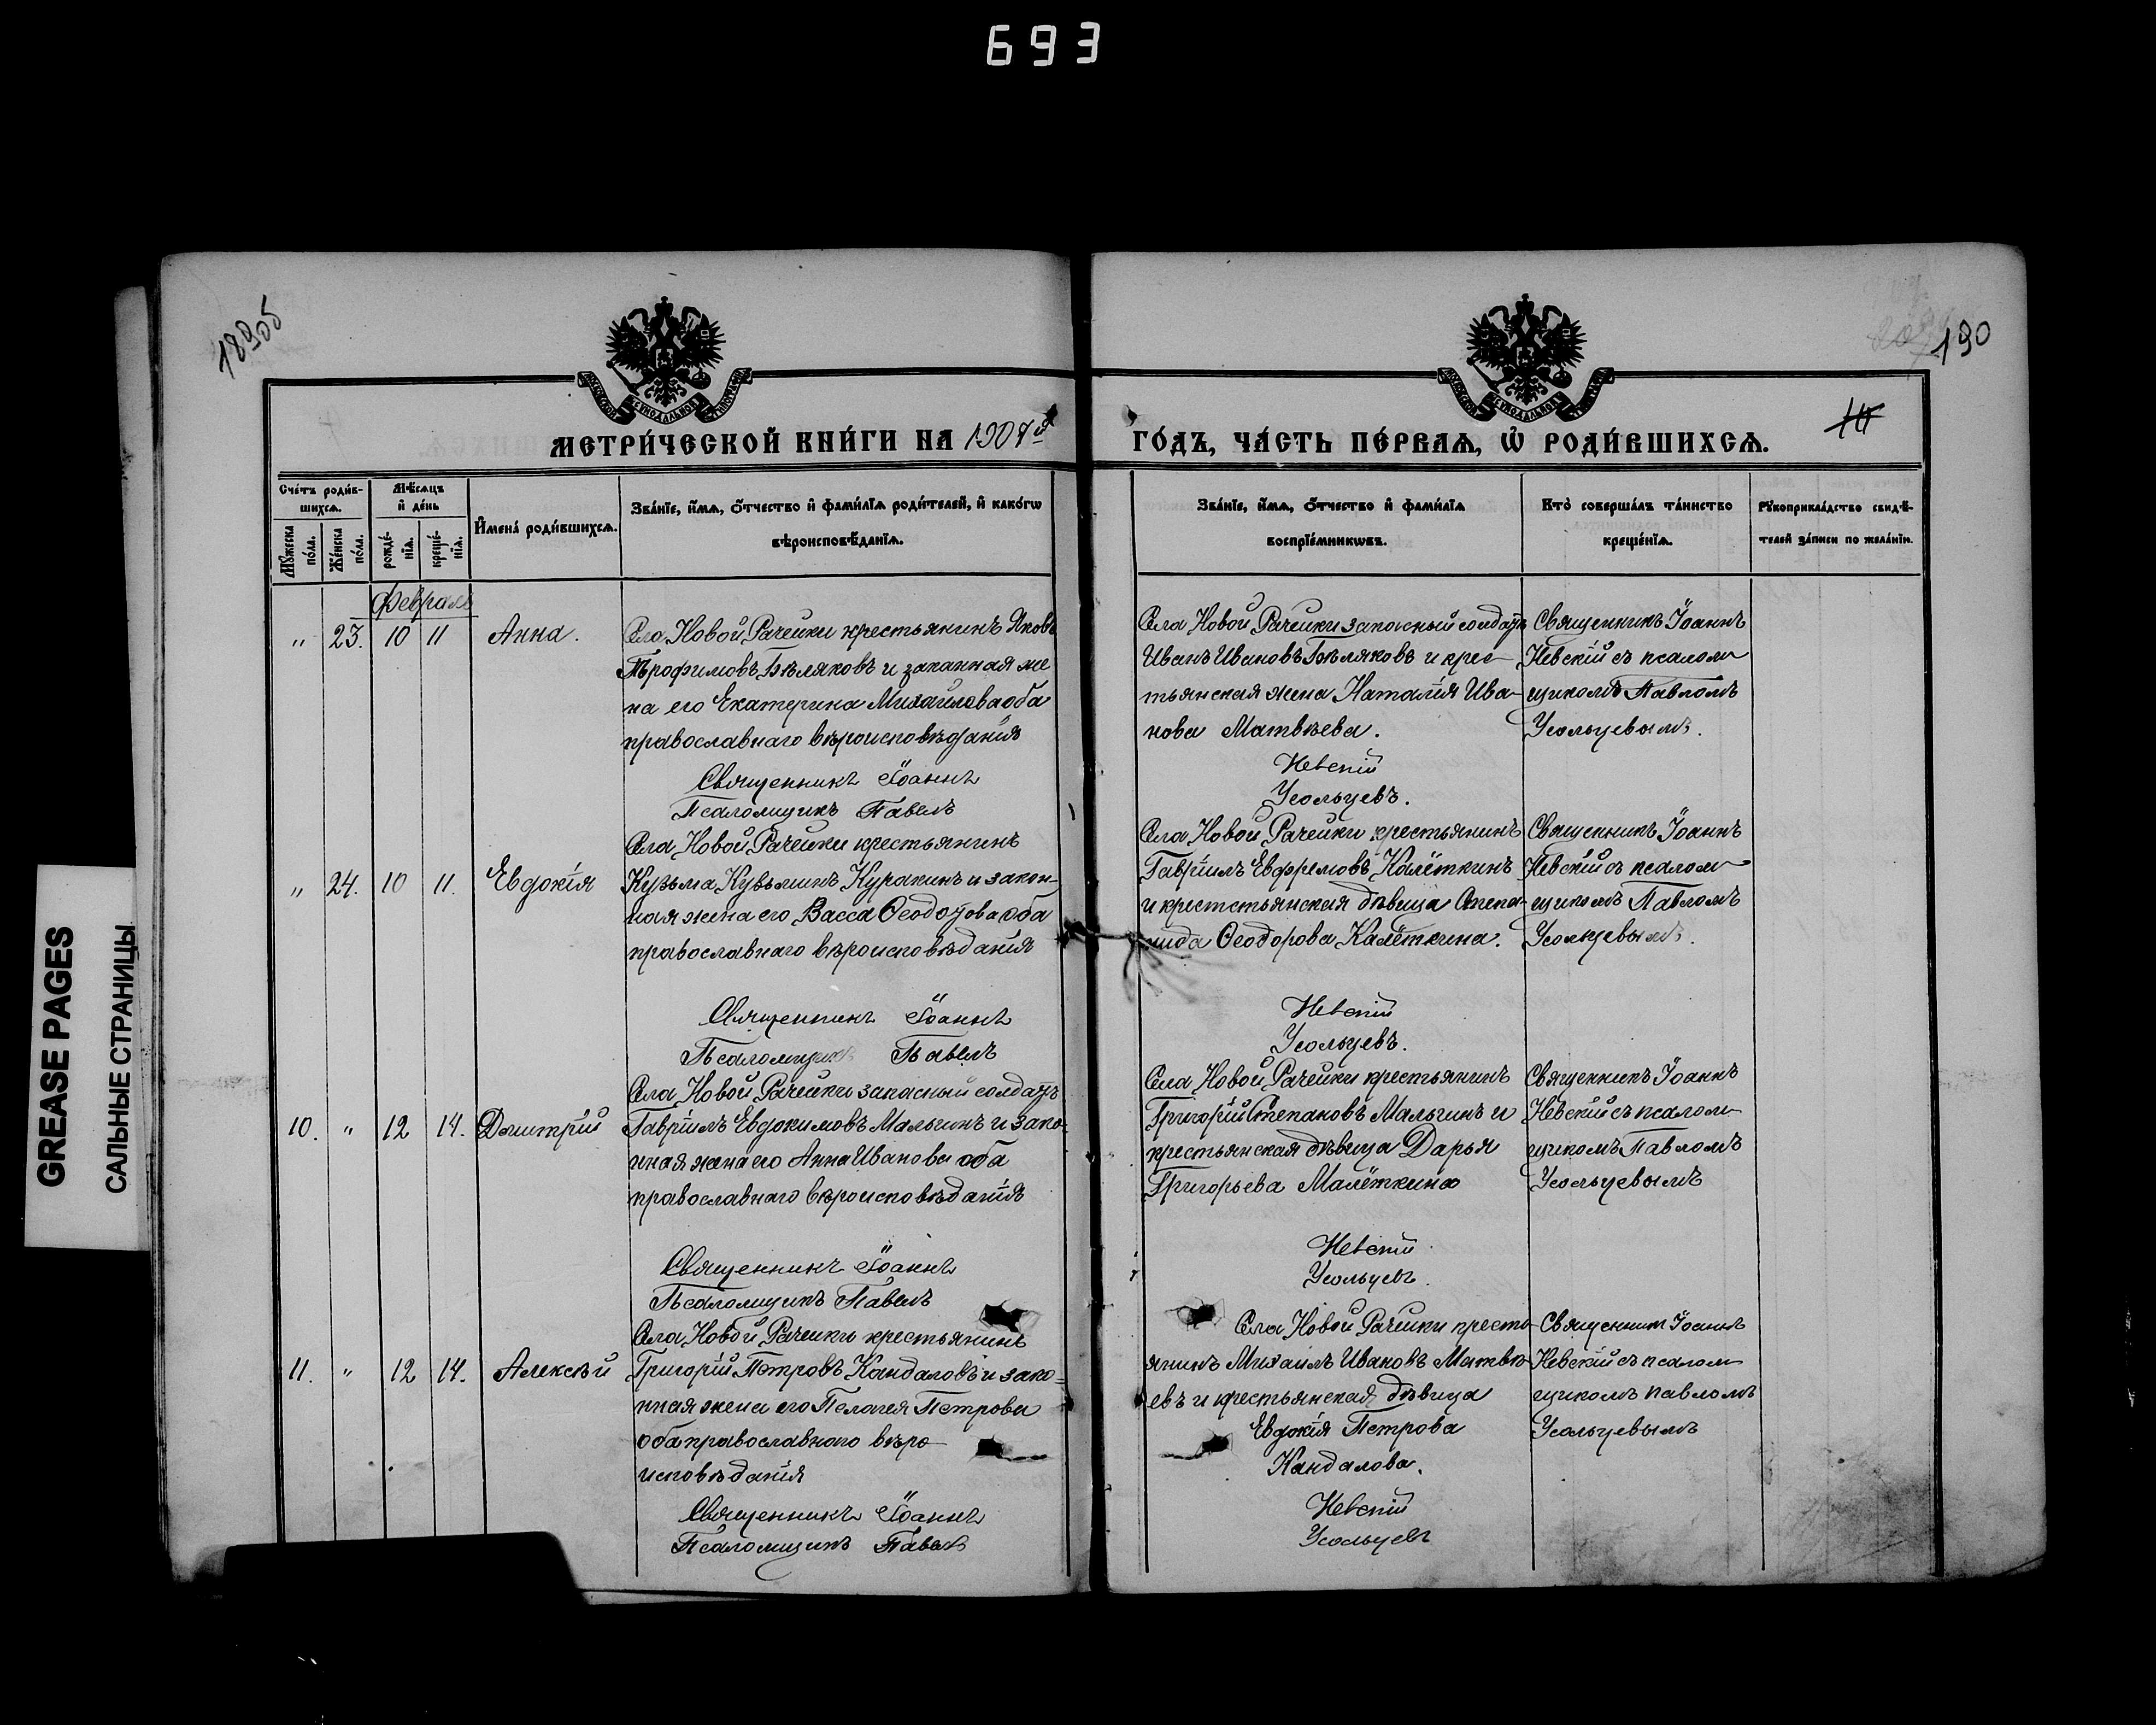 693
189об
190
МЕТРИ́ЧЕСКОЙ КНИ́ГИ НА 1907й
ГО́ДЪ, ЧА́СТЬ ПЕ́РВАѦ, Ѽ РОДИ́ВШИХСѦ.
Сче́тъ роди́в-
шихсѧ.
Мꙋ́жеска
по́ла.
Же́нска
по́ла.
Мѣ́сѧцъ
и҆ де́нь
рожде́-
нїѧ.
креще́-
нїѧ.
И҆мена̀ роди́вшихсѧ.
Зва́нїе, и҆́мѧ, ѻ҆́тчество и҆ фами́лїѧ роди́телей, и҆ како́гѡ
вѣроисповѣ́данїѧ.
Зва́нїе, и҆́мѧ, ѻ҆́тчество и҆ фами́лїѧ
воспрїе́мникѡвъ.
Кто̀ соверша́лъ та́инство
креще́нїѧ.
Рꙋкоприкла́дство свидѣ́-
телей за́писи по жела́нїю.
Февраль
" 23. 10 11 Анна.
Села Новой Рачейки крестьянинъ Яковъ
Трофимовъ Бѣляковъ и законная же
на его Екатерина Михайлова оба
православнаго вѣроисповѣданія
Священникъ Іоаннъ
Псаломщикъ Павелъ
Села Новой Рачейки запасный солдатъ
Иванъ Ивановъ Бѣляковъ и крес-
тьянская жена Наталія Ива-
нова Матвѣева.
Невскій
Усольцевъ.
Священникъ Іоаннъ
Невскій съ псалом
щикомъ Павломъ
Усольцевымъ.
" 24. 10 11. Евдокія
Села Новой Рачейки крестьянинъ
Кузьма Кузьминъ Куракинъ и закон-
ная жена его Васса Ѳеодотова оба
православнаго вѣроисповѣданія
Священникъ Іоаннъ
Псаломщикъ Павелъ
Села Новой Рачейки крестьянинъ
Гавріилъ Евфремовъ Калёткинъ
и крестстьянская дѣвица Степа-
нида Ѳеодорова Калёткина.
Невскій
Усольцевъ.
Священникъ Іоаннъ
Невскій съ псалом
щикомъ Павломъ
Усольцевымъ.
10. " 12 14. Димитрій
Села Новой Рачейки запасный солдатъ
Гавріилъ Евдокимовъ Малыгинъ и зако-
нная жена его Анна Иванова оба
православнаго вѣроисповѣданія
Священникъ Іоаннъ
Псаломщикъ Павелъ
Села Новой Рачейки крестьянинъ
Григорій Степановъ Малыгинъ и
крестьянская дѣвица Дарья
Григорьева Малёткина
Невскій
Усольцевъ.
Священникъ Іоаннъ
Невскій съ псалом-
щикомъ Павломъ
Усольцевымъ
11. " 12 14. Алексѣй
Села Новой Рачейки крестьянинъ
Григорій Петровъ Кандаловъ и зако=
нная жена его Пелагея Петрова
оба православнаго вѣро-
исповѣданія
Священникъ Іоаннъ
Псаломщикъ Павелъ
Села Новой Рачейки кресть-
янинъ Михаилъ Ивановъ Матвѣ-
евъ и крестьянская дѣвица
Евдокія Петрова
Кандалова.
Невскій
Усольцевъ
Священникъ Іоаннъ
Невскій съ псалом
щикомъ Павломъ
Усольцевымъ
GREASE PAGES
САЛЬНЫЕ СТРАНИЦЫ